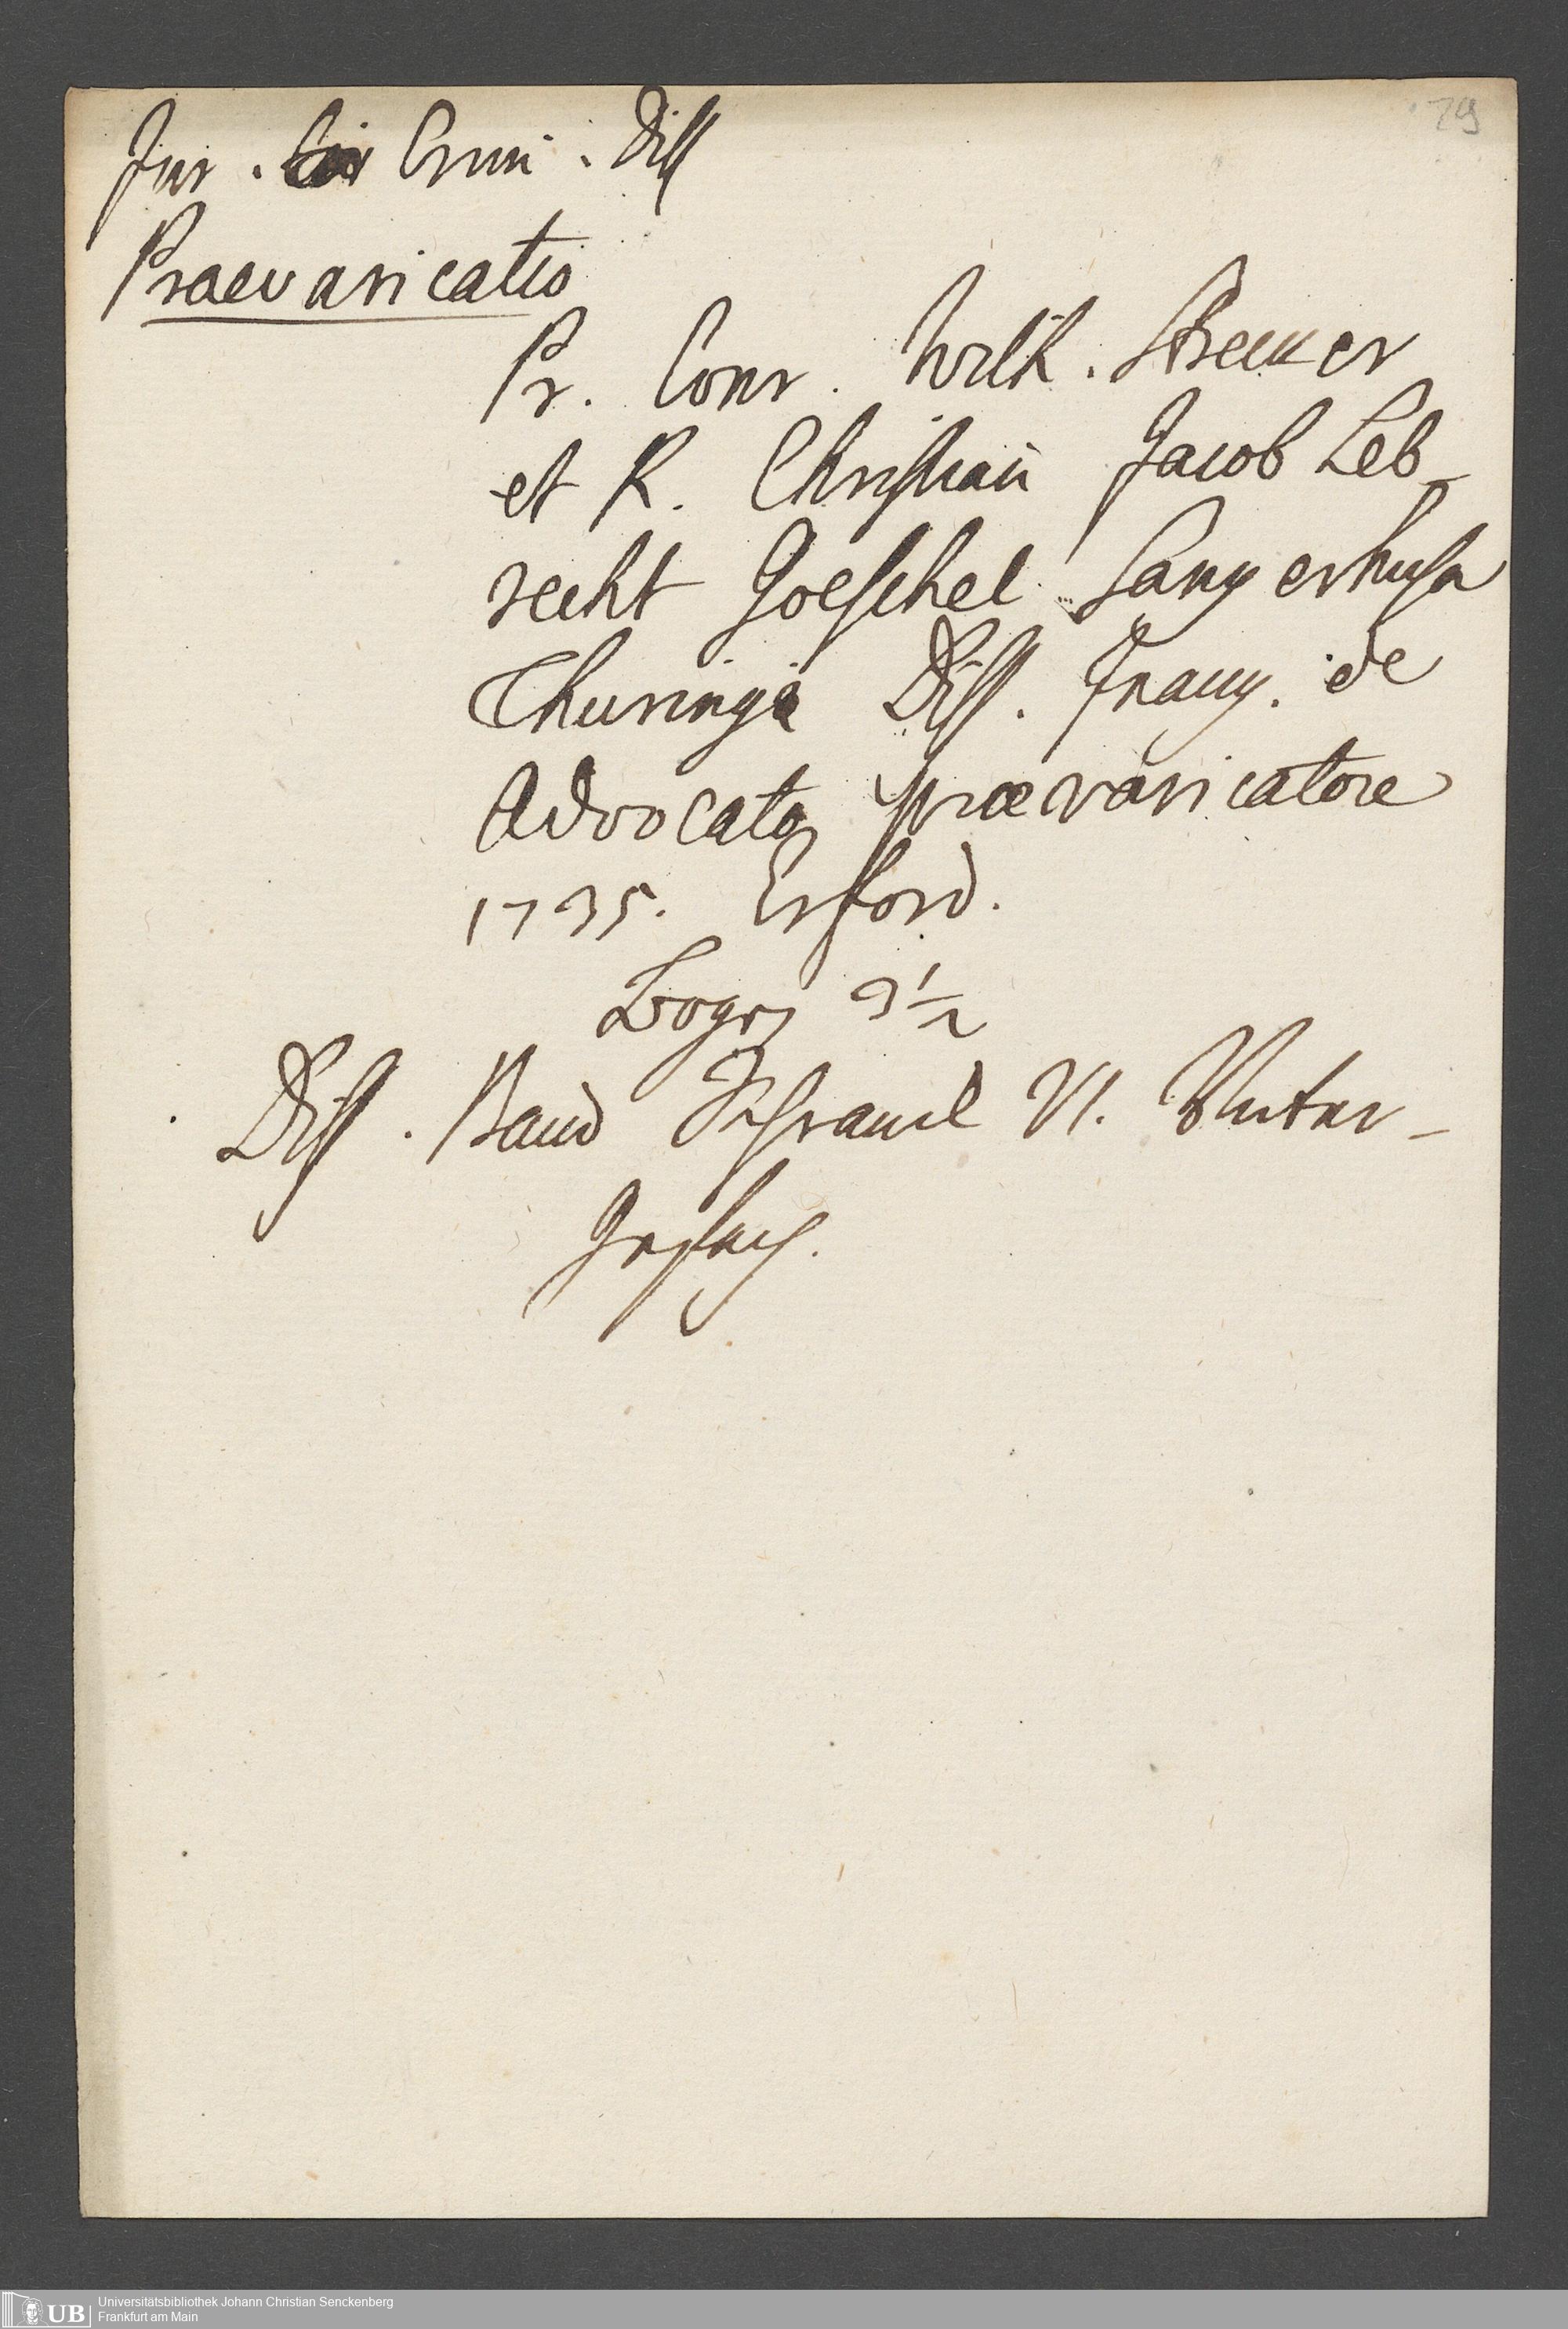 79
Jur. Crim. Diss
Praevaricatio
Pr. Conr. Wilh. Strecker
et R. Christian Jacob Leb-
recht Goeschel Sangerhusa
Thuringi Diss. Inaug. de
Advocato prævaricatore
1735. Erford.
Bogen 3 1/2
Diss. Band VI. Unter-
UB
Universitätsbibliothek Johann Christian Senckenberg
Frankfurt am Main